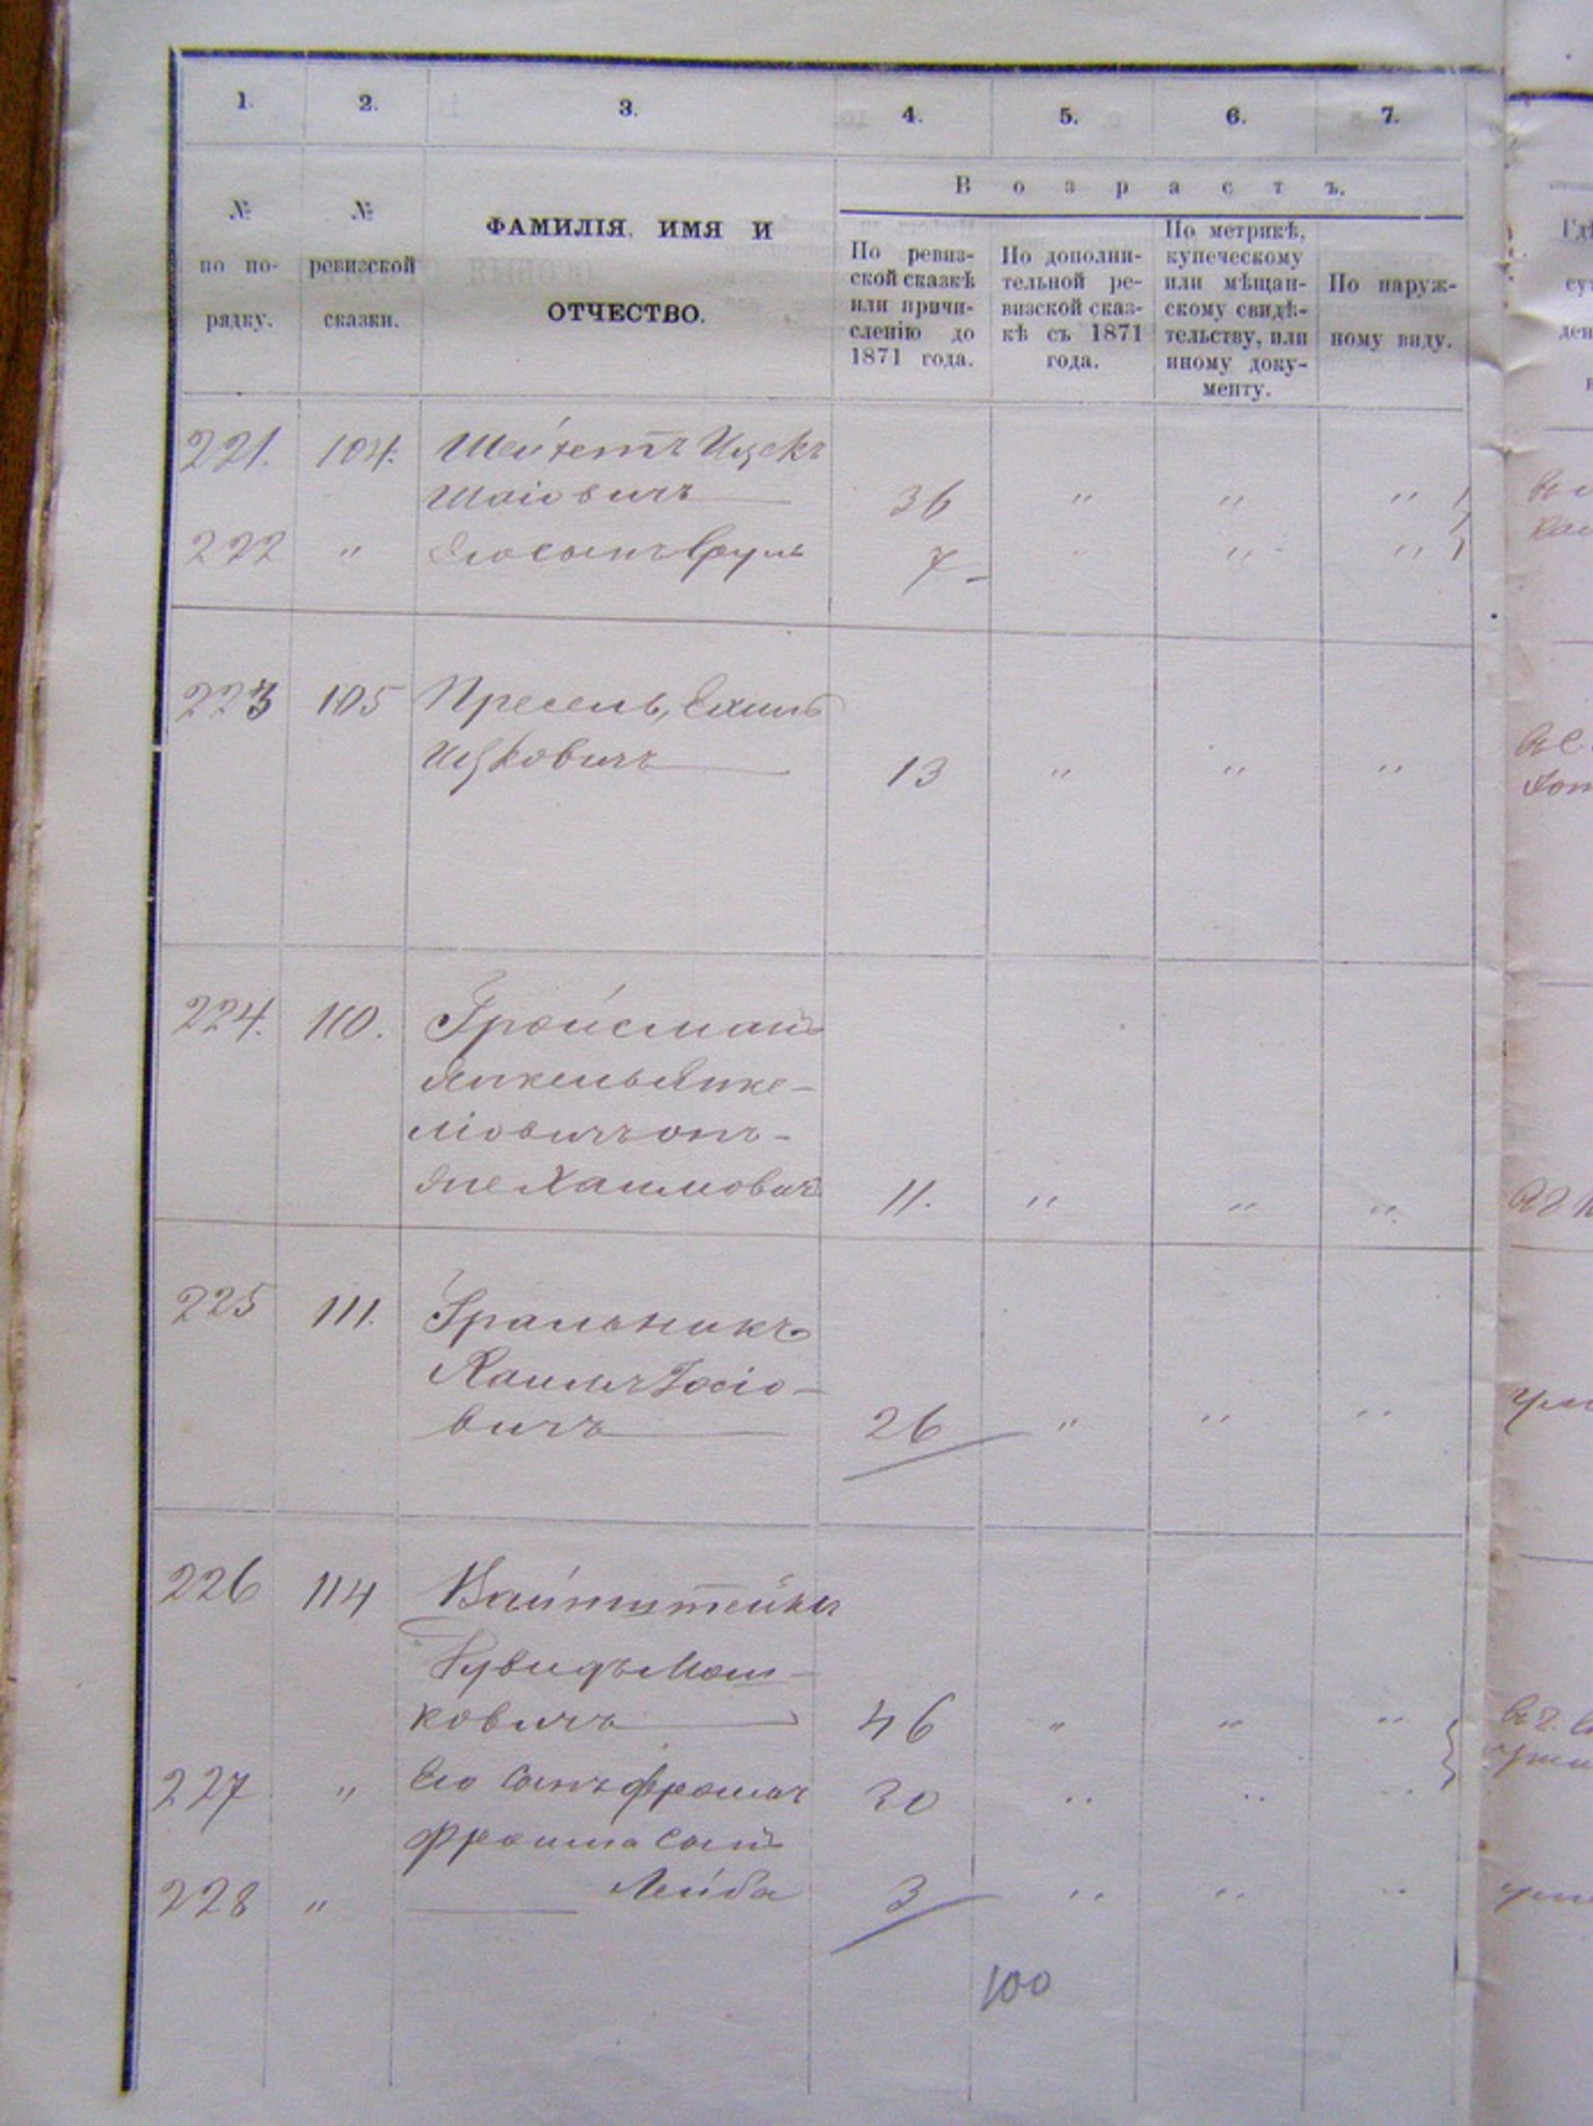 1. 2. 3. 4. 5. 6. 7.
№ по по- рядку.
№ ревизской сказки.
ФАМИЛІЯ, ИМЯ И
ОТЧЕСТВО.
Возрастъ.
По ревиз-
ской сказкѣ
или причи-
сленію до
1871 года.
По дополни-
тельной ре-
визской сказ-
кѣ съ 1871
года.
По метрикѣ,
купеческому
или мѣщан-
скому свидѣ-
тельству, или
иному доку-
менту.
По наруж-
ному виду.
221. 104. Ицекъ
Шаіовичъ 36 " " "
222 " Его сынъ Сруль 7 " " "
223 105 Пресель, Ехиль
Ицковичъ 13 " " "
224. 110. Гройсманъ
Янкель Янке-
ліовичъ онъ-
же Хаимовичъ 11. " " "
225 111. Гральникъ
Хаимъ Іосіо-
вичъ 26 " " "
226 114 Вайнштейнъ
Мош-
ковичъ 46 " " "
227 " Его Сынъ Фроимъ 20 " " "
Фроима Сынъ
228 " Лейба 3 " " "
100